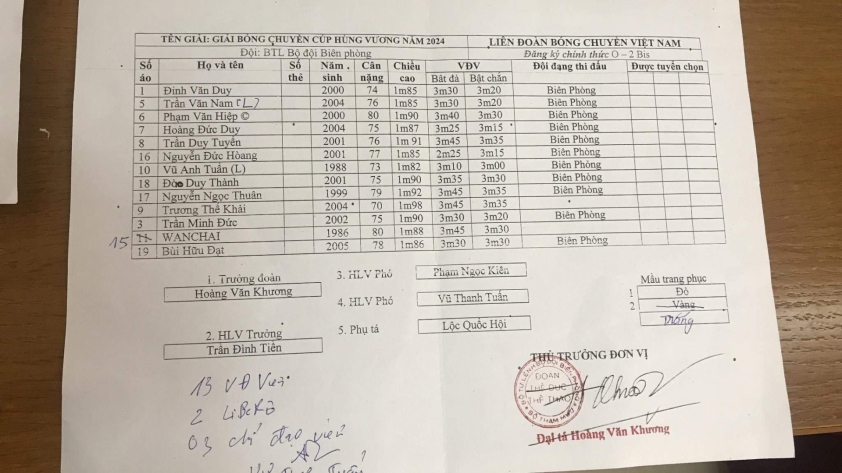 TÊN GIẢI: GIẢI BÓNG CHUYỀN CÚP HÙNG VƯƠNG NĂM 2024 LIÊN ĐOÀN BÓNG CHUYỀN VIỆT NAM
Đội: BTL Bộ đội Biên phòng Đăng ký chính thức O – 2 Bis
Số áo Họ và tên Số thẻ Năm sinh Cân nặng Chiều cao VĐV Bật đà Bật chắn Đội đang thi đấu Được tuyển chọn
1 Đinh Văn Duy 2000 74 1m85 3m30 3m20 Biên Phòng
5 Trần Văn Nam (L) 2004 76 1m85 3m30 3m20 Biên Phòng
6 Phạm Văn Hiệp © 2000 80 1m90 3m40 3m30 Biên Phòng
7 Hoàng Đức Duy 2004 75 1m87 3m25 3m15 Biên Phòng
8 Trần Duy Tuyến 2001 76 1m 91 3m45 3m35 Biên Phòng
16 Nguyễn Đức Hoàng 2001 77 1m85 2m25 3m15 Biên Phòng
10 Vũ Anh Tuấn (L) 1988 73 1m82 3m10 3m00 Biên Phòng
18 Duy Thành 2001 75 1m90 3m35 3m30 Biên Phòng
17 Nguyễn Ngọc Thuân 1999 79 1m92 3m45 3m35 Biên Phòng
9 Trương Thế Khải 2004 70 1m98 3m45 3m35
3 Trần Minh Đức 2002 75 1m90 3m30 3m20 Biên Phòng
15 WANCHAI 1986 80 1m88 3m45 3m30
19 Bùi Hữu Đạt 2005 78 1m86 3m30 3m30 Biên Phòng
1. Trưởng đoàn
Hoàng Văn Khương
2. HLV Trưởng
Trần Đình Tiền
3. HLV Phó Phạm Ngọc Kiên
4. HLV Phó Vũ Thanh Tuấn
5. Phụ tá Lộc Quốc Hội
Mẫu trang phục
1 Đỏ
2 Vàng
Trắng
THỦ TRƯỞNG ĐƠN VỊ
ĐOÀN
THỂ DỤC
THỂ THAO
BỘ THAM MƯU
Đại tá Hoàng Văn Khương
13 VĐ Viên
2 LiBERO
03 chỉ đạo viên